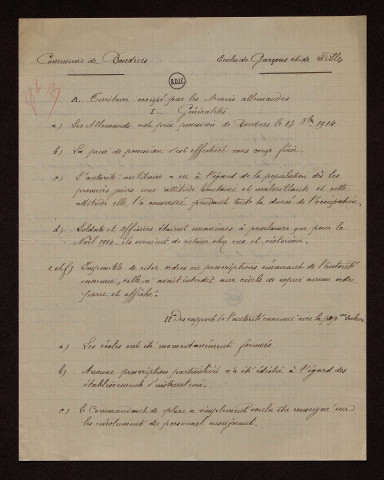 Commune de Bondues
Ecoles de Garçons et de Filles
B.D.I.C
A. Territoire occupé par les Armées allemandes
I. Généralités
a) Les Allemands ont pris possession de Bondues le 13 8bre 1914
b) La prise de possession s'est effectuée sans coup férir.
c) L'autorité militaire a eu à l'égard de la population dès les
premiers jours une attitude hautaine et malveillante et cette
attitude elle l'a conservée pendant toute la durée de l'occupation.
d) Soldats et officiers étaient unanimes à proclamer que pour la
Noël 1914, ils seraient de retour chez eux et victorieux.
e et f) Impossible de citer ordres ou prescriptions émanant de l'autorité
ennemie, celle-ci avait interdit aux civils de copier aucun ordre
paru et affiché.
II Des rapports de l'autorité ennemie avec la pop.on scolaire
a) Les écoles ont été momentanément fermées
b) Aucune prescription particulière n'a été édictée à l'égard des
établissements d'instruction.
c) Le Commandant de place a simplement voulu être renseigné sur
les émoluments du personnel enseignant.